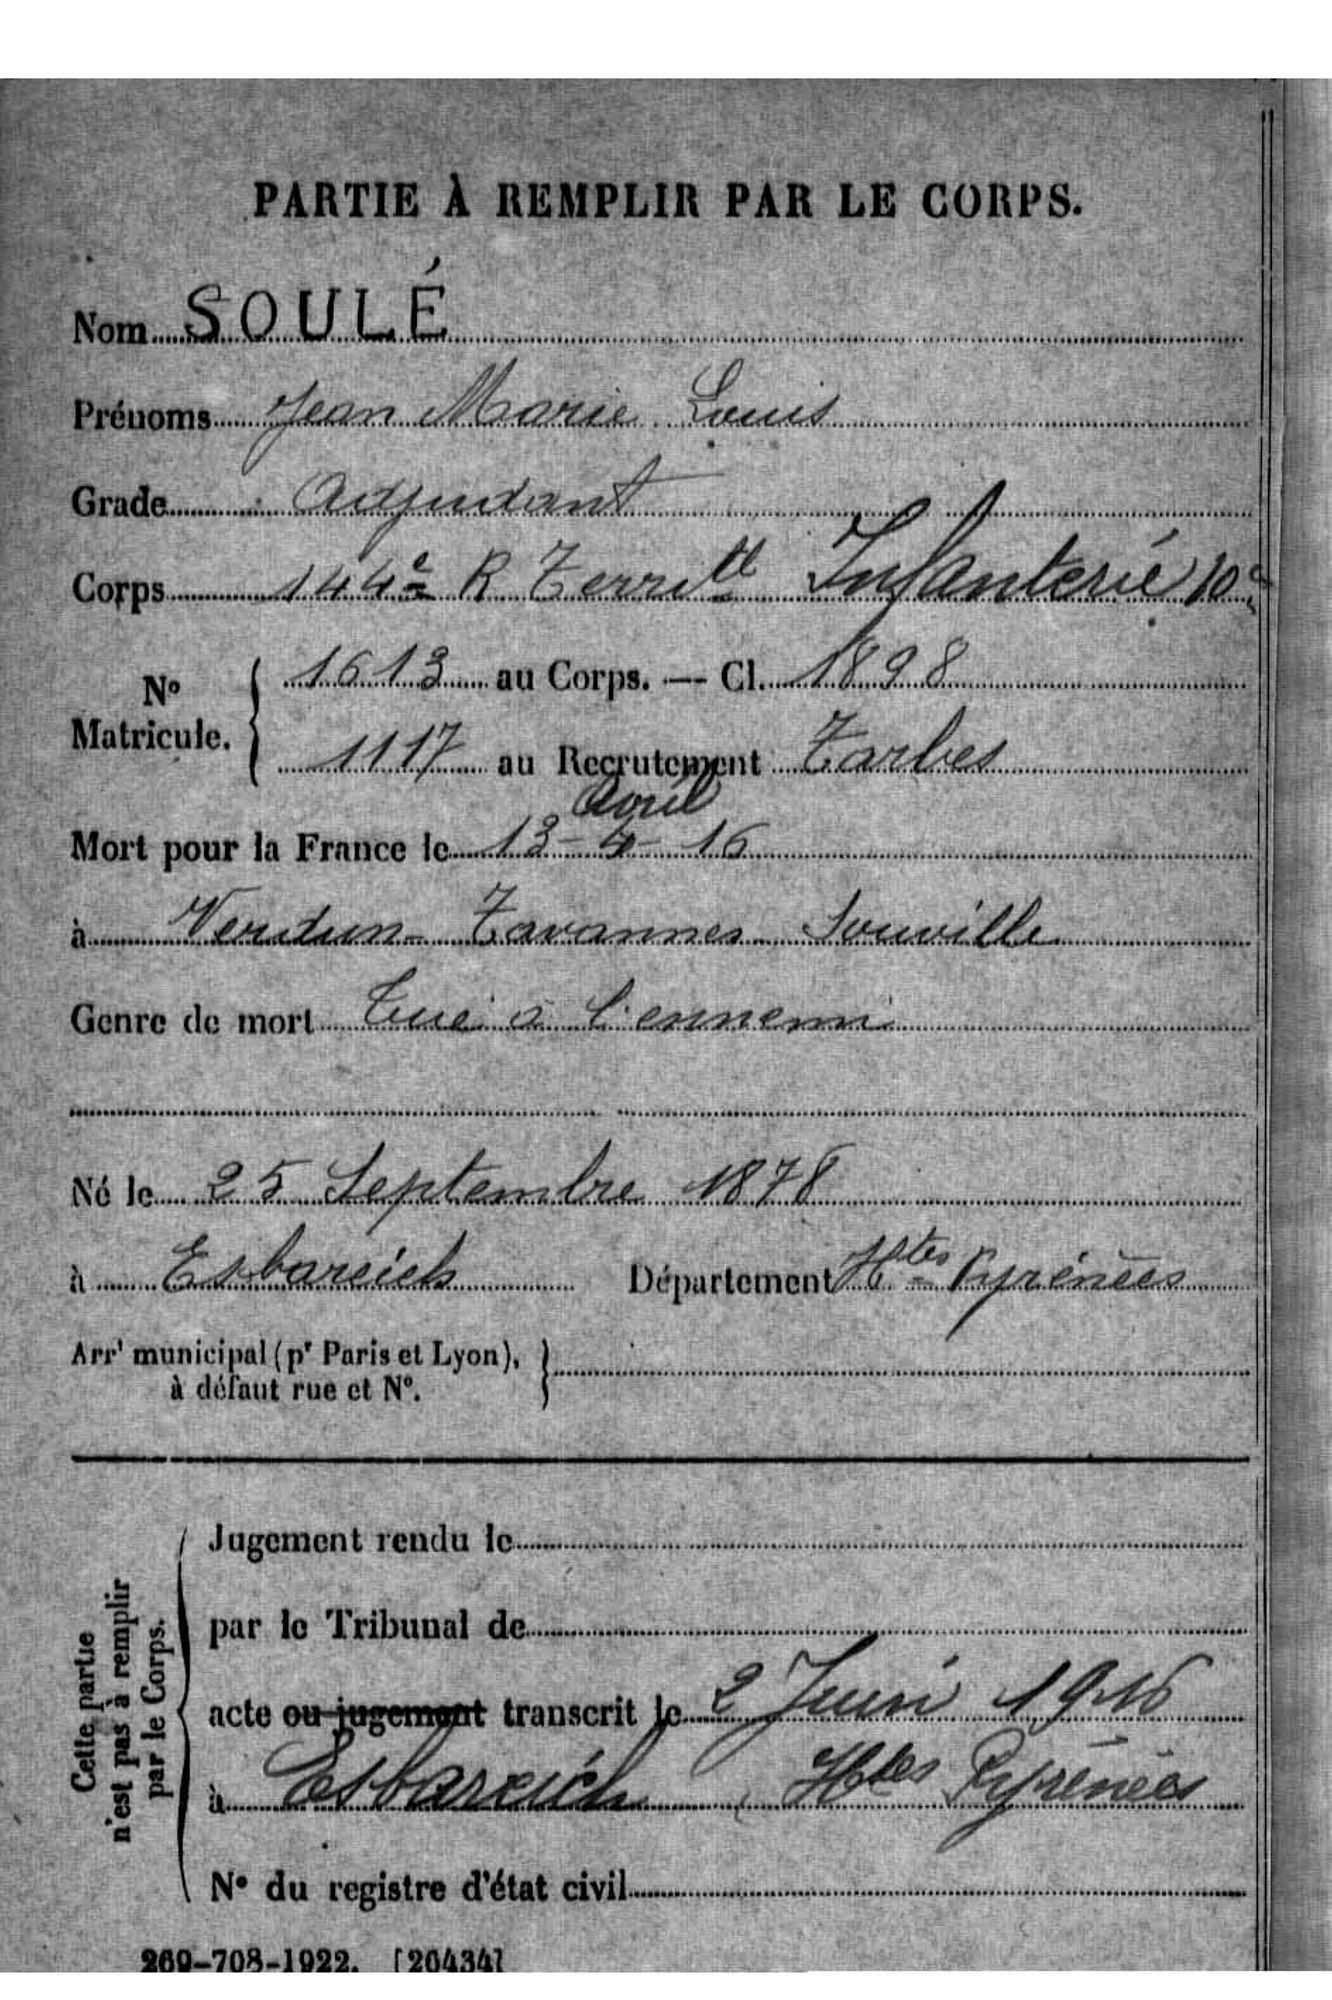 PARTIE À REMPLIR PAR LE CORPS.
Nom SOULÉ
Prénoms Jean Marie Louis
Grade Adjudant
Corps 144e R Territle Infanterie 10e
N° Matricule. { 1613 au Corps. — Cl. 1898
1117 au Recrutement Tarbes
Avril
Mort pour la France le 13-4-16
à Verdun - Tavannes Souville
Genre de mort Tué à l'ennemi
Né le 25 Septembre 1878
à Esbareich Département Htes Pyrénées
Arrt municipal (pr Paris et Lyon), à défaut rue et N°. }
Cette partie n'est pas à remplir par le Corps.
Jugement rendu le
par le Tribunal de
acte ou jugement transcrit le 2 Juin 1916
à Esbareich, Htes Pyrénées
N° du registre d'état civil
269-708-1922. [26434]